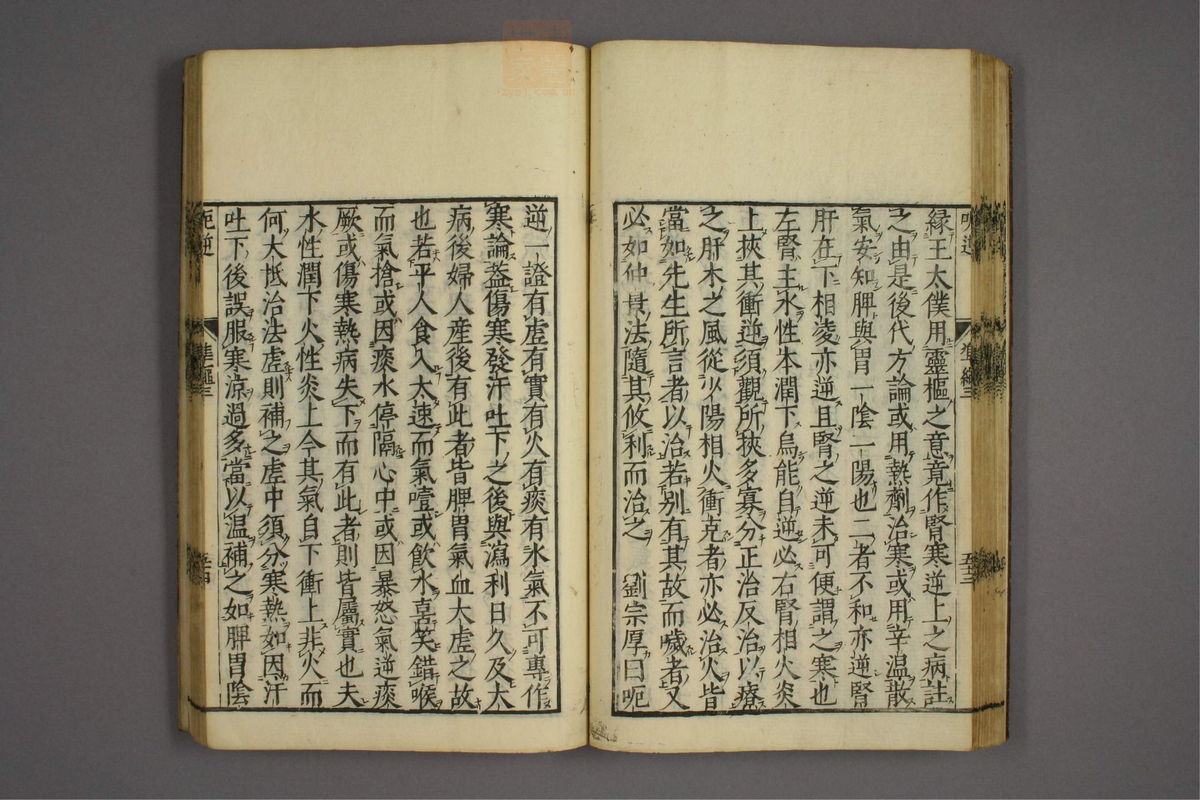 緣王太僕用靈樞之意竟作腎寒逆上之病註
之由是後代方論或用熱劑治寒或用辛温散
氣安知脾與胃一陰一陽也二者不和亦逆腎
肝在下相凌亦逆且腎之逆未可便謂之寒也
左腎主水性本潤下烏能自逆必右腎相火炎
上挾其衝逆須觀所挾多寡分正治反治以療
之肝木之風從少陽相火衝克者亦必治火皆
當如先生所言者以治若别有其故而噦者又
必如仲景法隨其攸利而治之　劉宗厚曰呃
逆一證有虚有實有火有痰有水氣不可專作
寒論蓋傷寒發汗吐下之後與瀉利日久及大
病後婦人産後有此者皆脾胃氣血大虚之故
也若平人食入太速而氣噎或飲水喜笑錯喉
而氣搶或因痰水停隔心中或因暴怒氣逆痰
厥或傷寒熱病失下而有此者則皆屬實也夫
水性潤下火性炎上今其氣自下衝上非火而
何大抵治法虚則補之虚中須分寒熱如因汗
吐下後誤服寒涼過多當以温補之如脾胃陰
呃逆